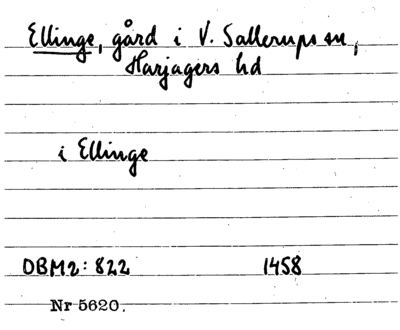 Ellinge, gård i V. Sallerups sn,
Harjagers hd
i Ellinge
DBM2: 822 1458
Nr 5620.